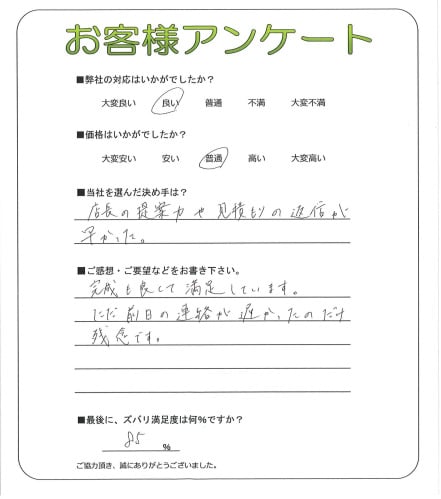 お客様アンケート
■弊社の対応はいかがでしたか?
大変良い 良い 普通 不満 大変不満
■価格はいかがでしたか?
大変安い 安い 普通 高い 大変高い
■当社を選んだ決め手は?
店長の提案力や見積もりの返信が
早かった。
■ご感想・ご要望などをお書き下さい。
完成も良して満足しています。
ただ前日の連絡が遅かったのだけ
残念です。
■最後に、ズバリ満足度は何%ですか?
85 %
ご協力頂き、誠にありがとうございました。